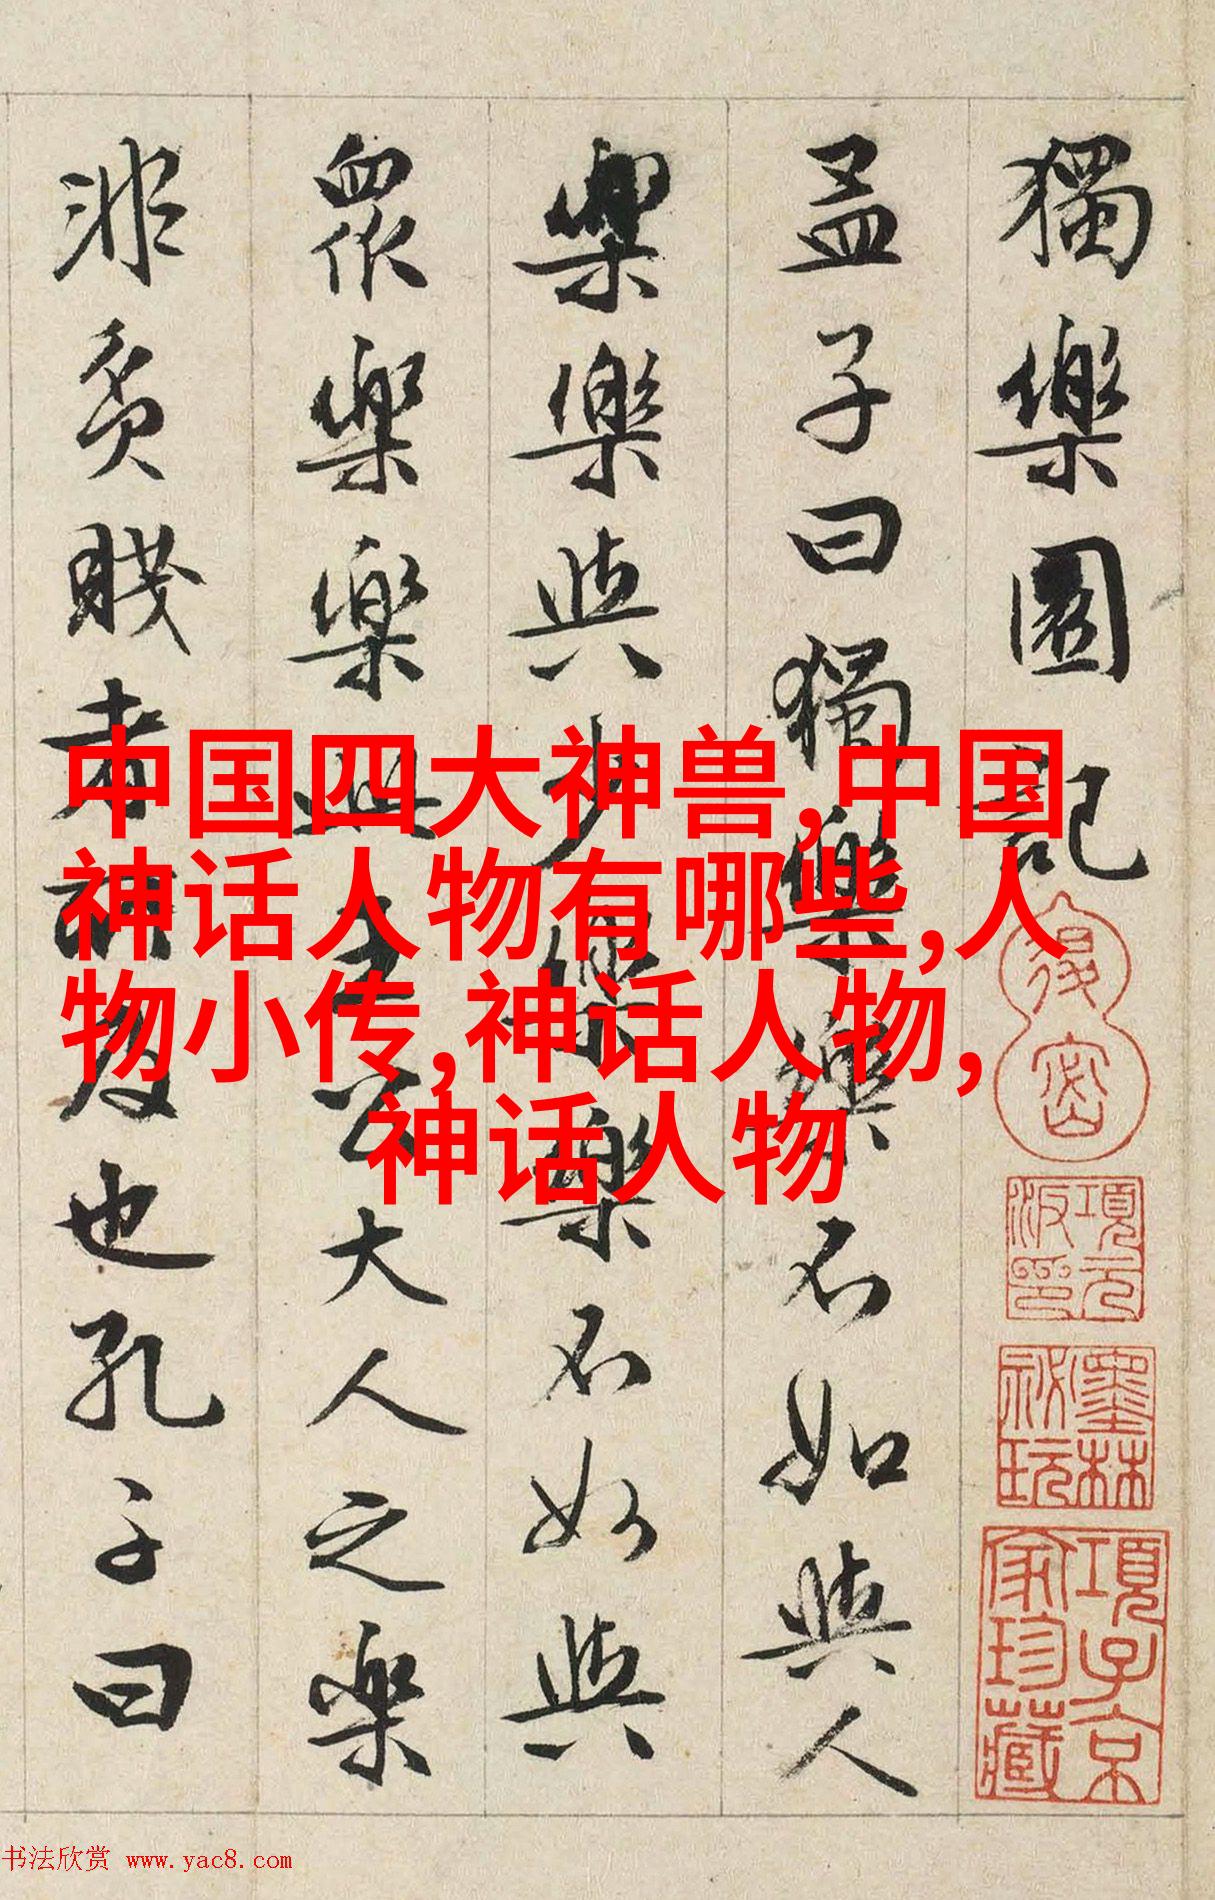 獨樂園記
孟子曰獨樂樂不如與人
樂樂與少樂樂不如與
眾樂樂此王公大人之樂
非貧賤者所及也孔子曰
中国四大神兽,中国
神话人物有哪些,人
物小传,神话人物,
神话人物
退密
項元汴印
墨林祕玩
項子京家珍藏
书法欣赏 www.yac8.com